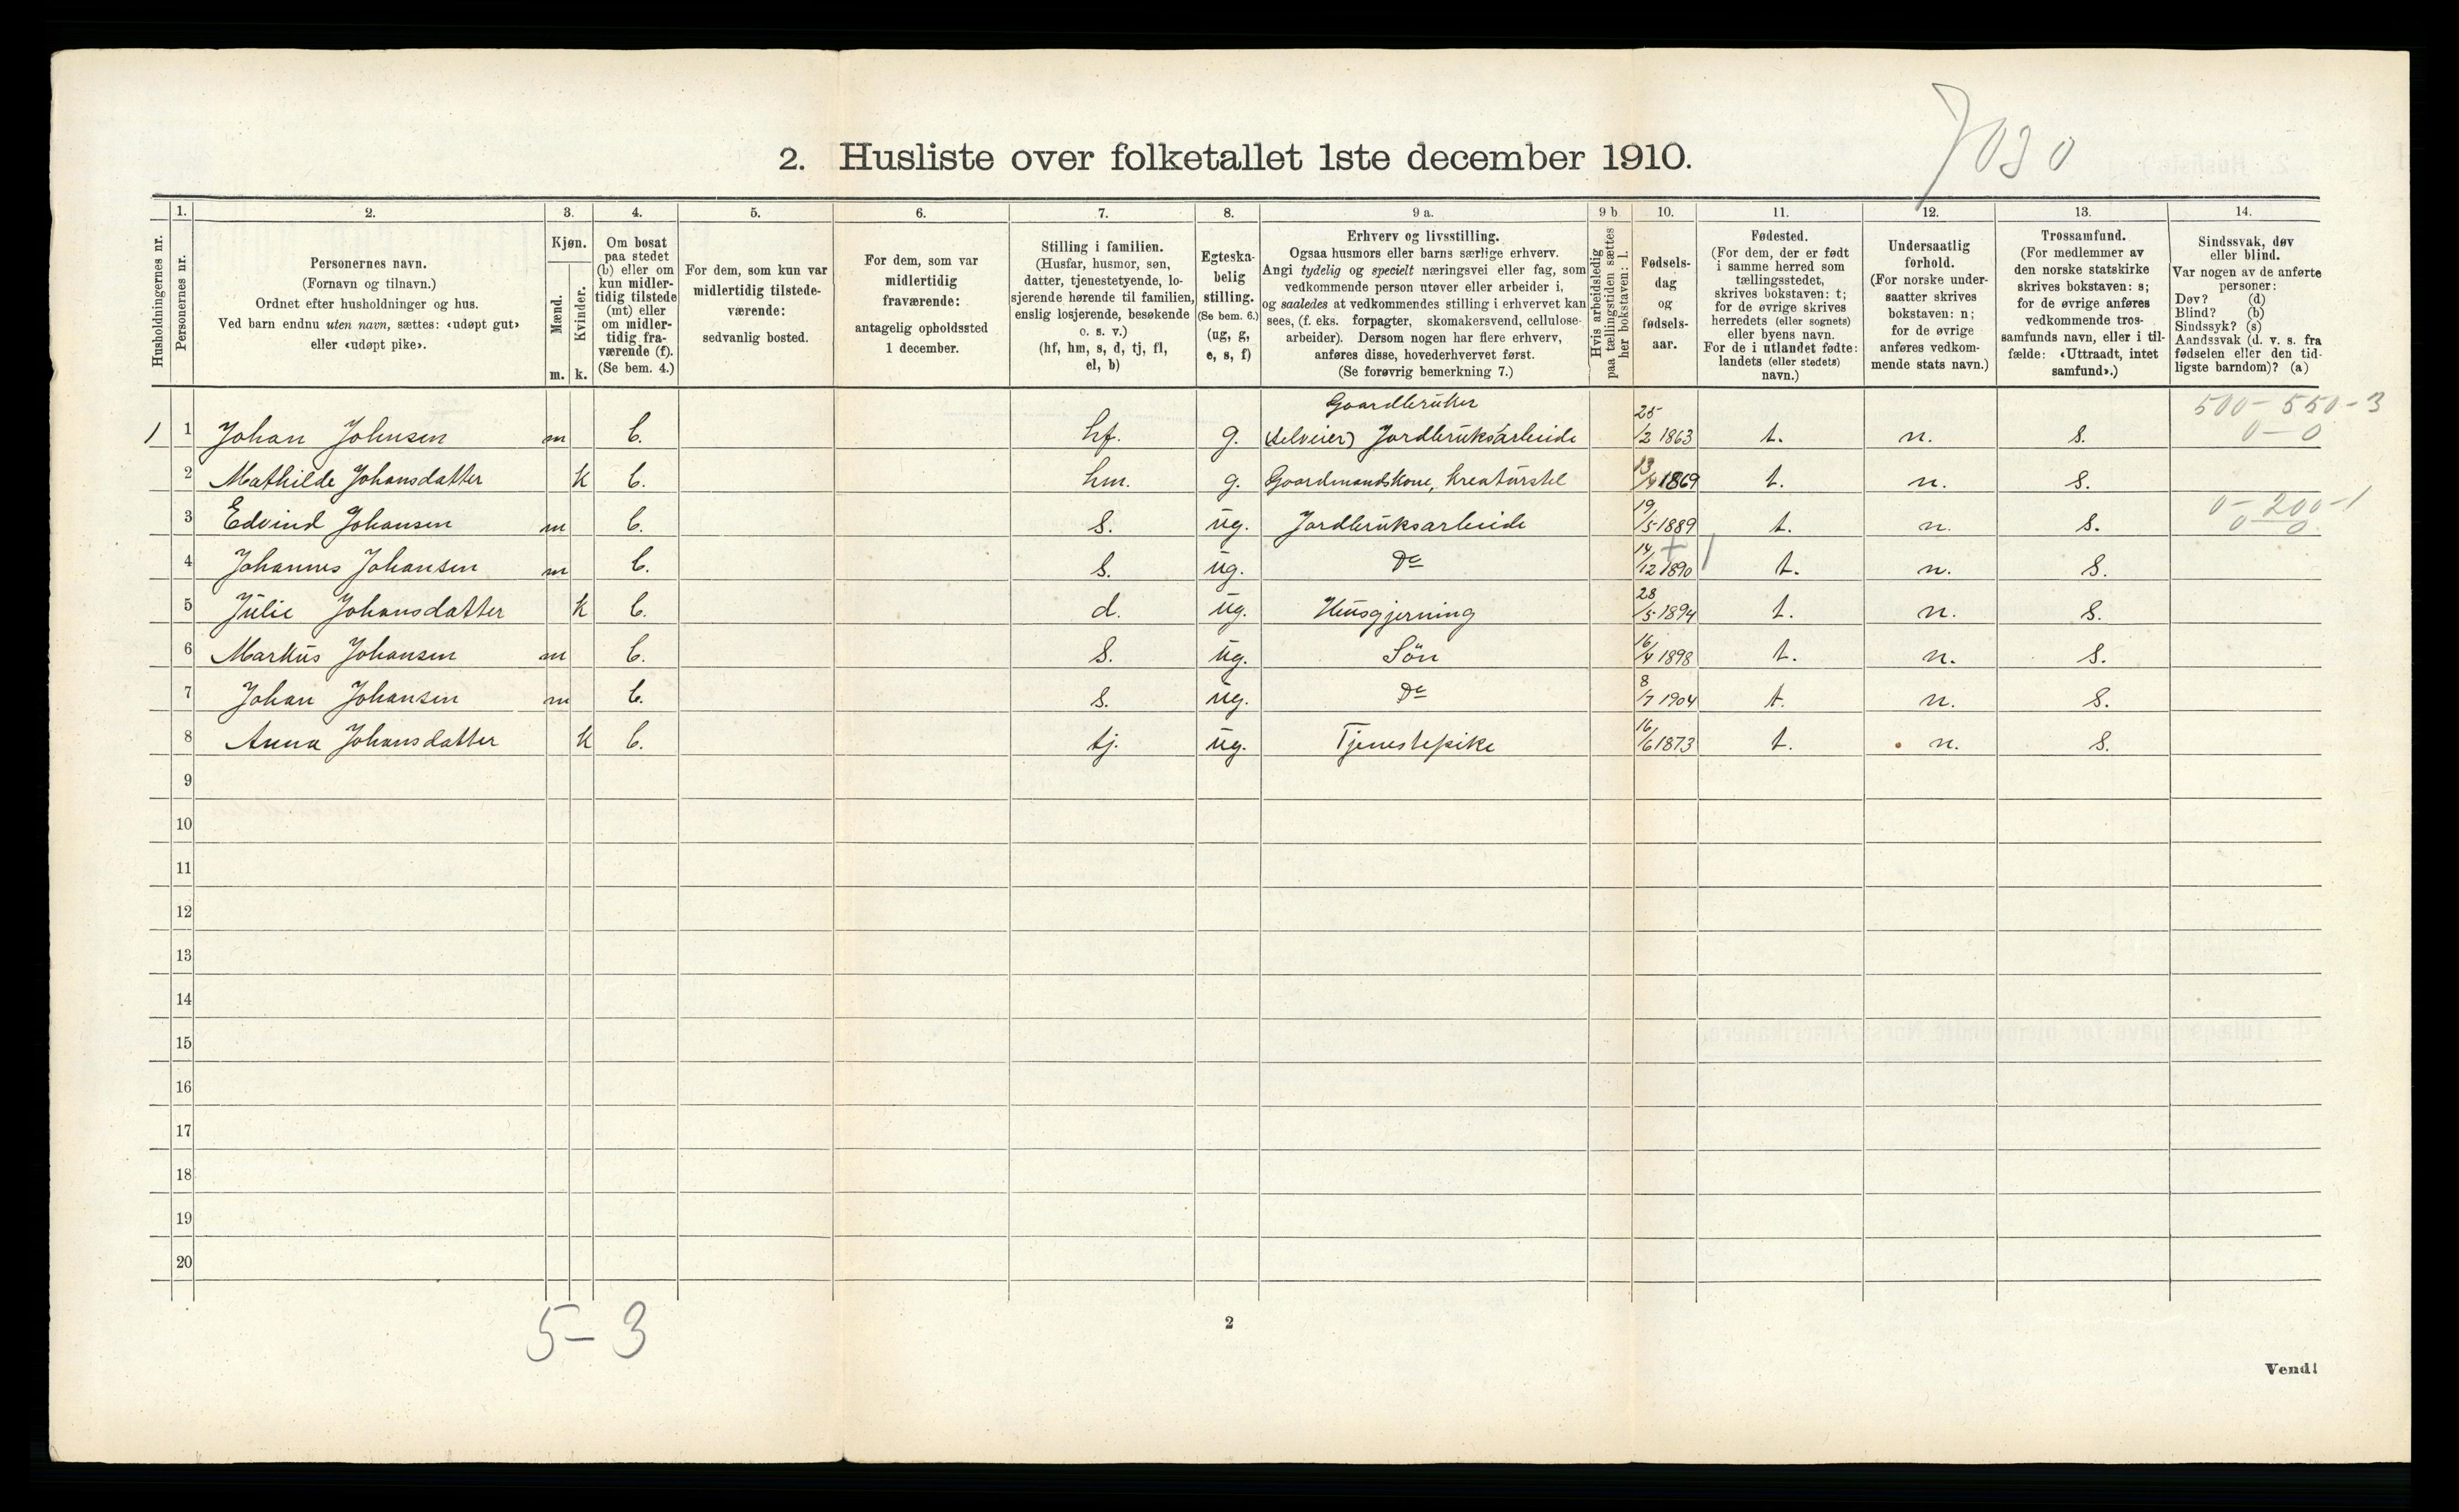 7030
2. Husliste over folketallet 1ste december 1910.
Husholdningernes nr.
1.
Personernes nr.
2.
Personernes navn.
(Fornavn og tilnavn.)
Ordnet efter husholdninger og hus.
Ved barn endnu uten navn, sættes: «udøpt gut»
eller «udøpt pike».
3.
Kjøn.
Mænd.
m.
Kvinder.
k.
4.
Om bosat
paa stedet
(b) eller om
kun midler-
tidig tilstede
(mt) eller
om midler-
tidig fra-
værende (f).
(Se bem. 4.)
5.
For dem, som kun var
midlertidig tilstede-
værende:
sedvanlig bosted.
6.
For dem, som var
midlertidig
fraværende:
antagelig opholdssted
1 december.
7.
Stilling i familien.
(Husfar, husmor, søn,
datter, tjenestetyende, lo-
sjerende hørende til familien,
enslig losjerende, besøkende
o. s. v.)
(hf, hm, s, d, tj, fl,
el, b)
8.
Egteska-
belig
stilling.
(Se bem. 6.)
(ug, g,
e, s, f)
9 a.
Erhverv og livsstilling.
Ogsaa husmors eller barns særlige erhverv.
Angi tydelig og specielt næringsvei eller fag, som
vedkommende person utøver eller arbeider i,
og saaledes at vedkommendes stilling i erhvervet kan
sees, (f. eks. forpagter, skomakersvend, cellulose-
arbeider). Dersom nogen har flere erhverv,
anføres disse, hovederhvervet først.
(Se forøvrig bemerkning 7.)
9 b
Hvis arbeidsledig
paa tællingstiden sættes
her bokstaven: l.
10.
Fødsels-
dag
og
fødsels-
aar.
11.
Fødested.
(For dem, der er født
i samme herred som
tællingsstedet,
skrives bokstaven: t;
for de øvrige skrives
herredets (eller sognets)
eller byens navn.
For de i utlandet fødte:
landets (eller stedets)
navn.)
12.
Undersaatlig
forhold.
(For norske under-
saatter skrives
bokstaven: n;
for de øvrige
anføres vedkom-
mende stats navn.)
13.
Trossamfund.
(For medlemmer av
den norske statskirke
skrives bokstaven: s;
for de øvrige anføres
vedkommende tros-
samfunds navn, eller i til-
fælde: «Uttraadt, intet
samfund».)
14.
Sindssvak, døv
eller blind.
Var nogen av de anførte
personer:
Døv? (d)
Blind? (b)
Sindssyk? (s)
Aandssvak (d. v. s. fra
fødselen eller den tid-
ligste barndom)? (a)
Gaardbruker 500 - 550 - 3
1 1 Johan Johnsen m b. hf. g. (selveier) Jordbruksarbeide 25/2 1863 t. n. s. 0 - 0
2 Mathilde Johansdatter k b. hm. g. Gaardmandskone, kreaturstel 13/4 1869 t. n. s.
3 Edvind Johansen m b. s. ug. Jordbruksarbeide 19/5 1889 t. n. s. 0 - 200 - 1
0 - 0
4 Johannes Johansen m b. s. ug. Do 14/12 1890 t. n. s.
5 Julie Johansdatter k b. d. ug. Husgjerning 28/5 1894 t. n. s.
6 Markus Johansen m b. s. ug. Søn 16/4 1898 t. n. s.
7 Johan Johansen m b. s. ug. Do 8/7 1904 t. n. s.
8 Anna Johansdatter k b. tj. ug. Tjenestepike 16/6 1873 t. n. s.
9
10
11
12
13
14
15
16
17
18
19
20
5 - 3
2
Vend!